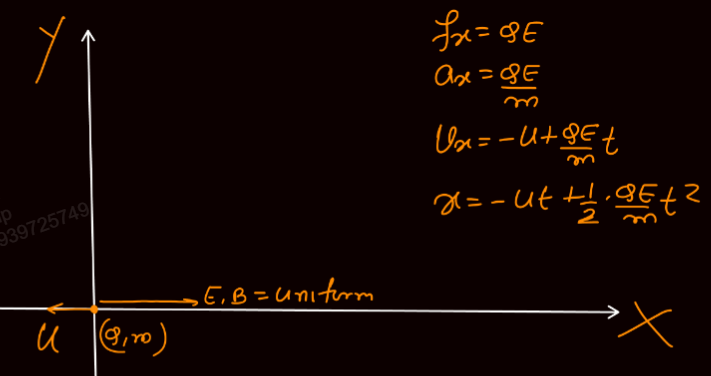 Y
fx = qE
ax = qE/m
Ux = -u + qE/m t
x = -ut + 1/2 · qE/m t²
939725749
E, B = uniform
X
u (q, m)